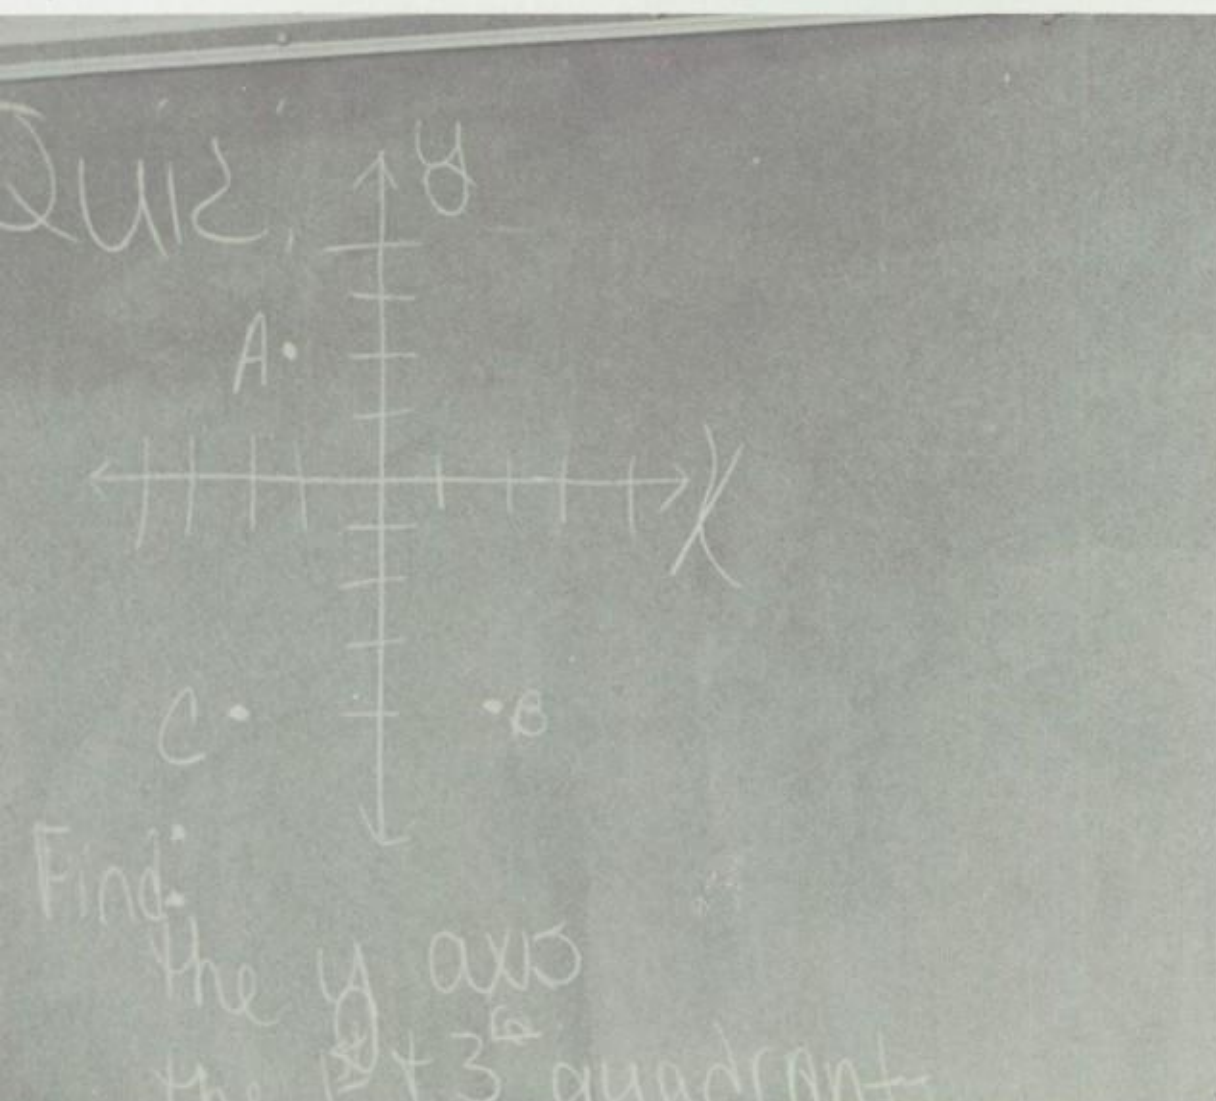 Quiz
y
A
X
C
B
Find:
the y axis
the 1st + 3rd quadrant